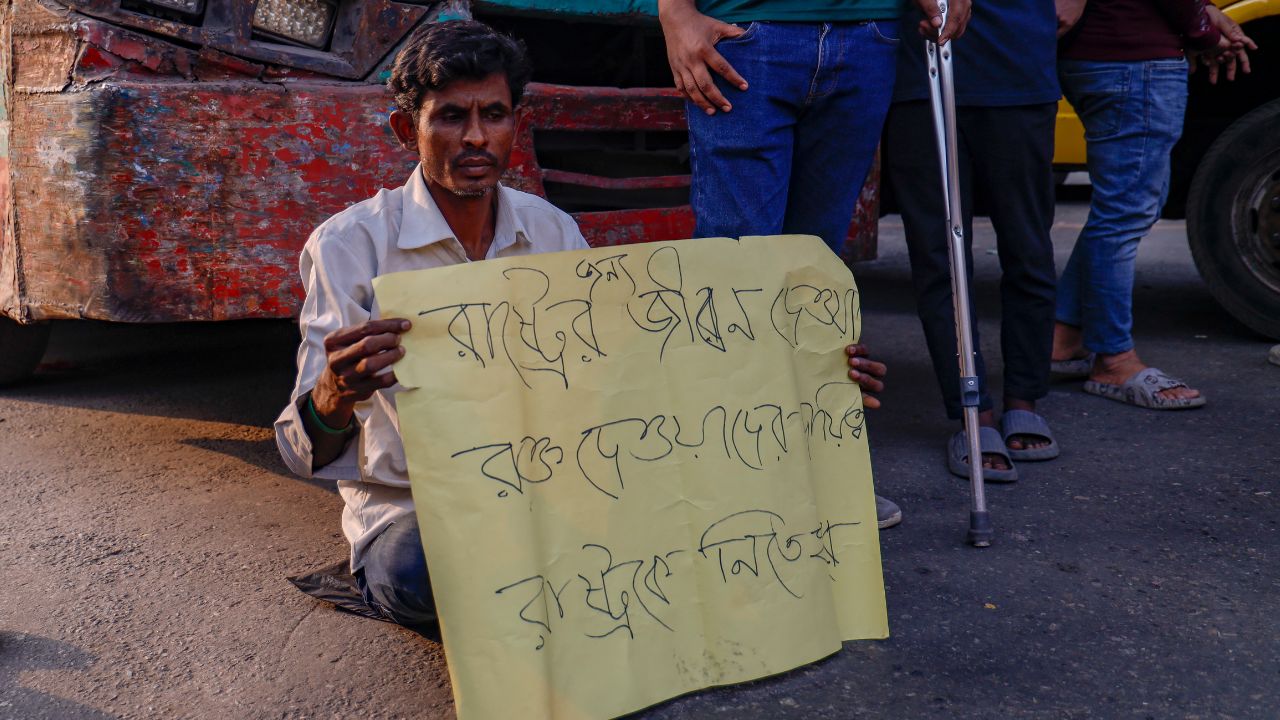 রাষ্ট্রের জন্য জীবন দেওয়া
রক্ত দেওয়াদের দায়িত্ব
রাষ্ট্রকে নিতে হবে